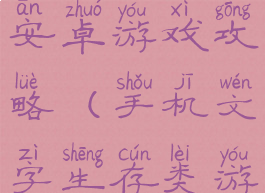 ān zhuó yóu xì gōng
安卓游戏攻
lüè shǒu jī wén
略（手机文
zì shēng cún lèi yóu
字生存类游